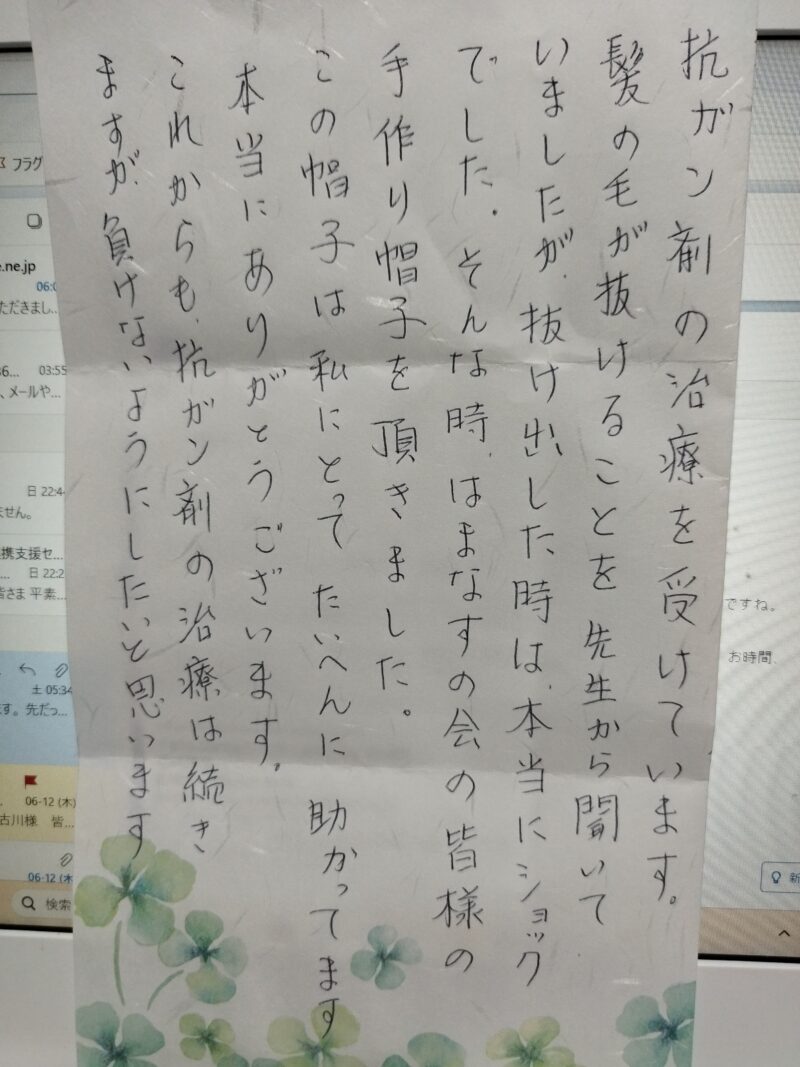 抗ガン剤の治療を受けています。
髪の毛が抜けることを先生から聞いて
いましたが、抜け出した時は、本当にショック
でした。そんな時、はまなすの会の皆様の
手作り帽子を頂きました。
この帽子は私にとって たいへんに 助かってます
本当にありがとうございます。
これからも、抗ガン剤の治療は続き
ますが、負けないようにしたいと思います
フラグ
e.ne.jp
06:0
ただきまし...
03:55
、メールや...
日 22:4
ません。
携支援セ...
日 22:2
皆さま 平素...
土 05:34
す。先だっ...
06-12 (木)
古川様 皆...
06-12 (木
検索
ですね。
お時間、
新